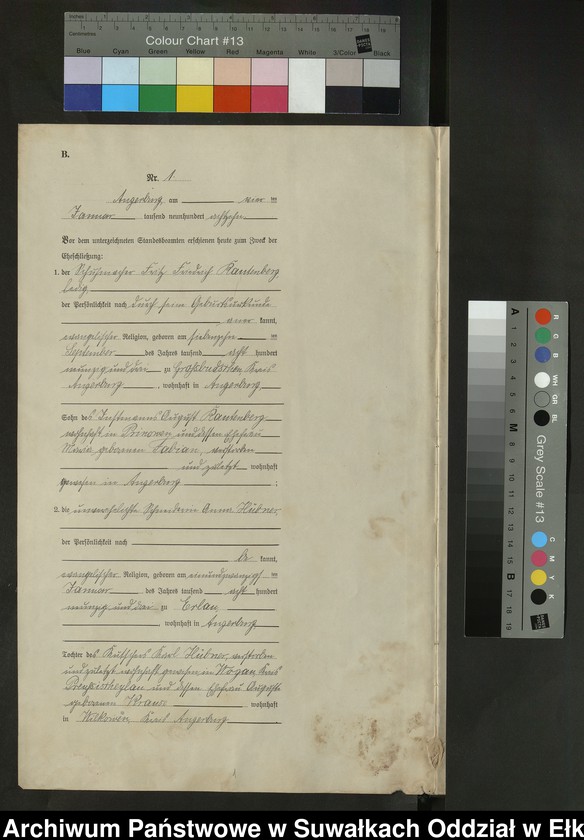 Inches
Centimetres
Colour Chart #13
Blue Cyan Green Yellow Red Magenta White 3/Color Black
B.
Nr. 1
Angerburg am vier ten
Januar tausend neunhundert achtzehn
Vor dem unterzeichneten Standesbeamten erschienen heute zum Zweck der
Eheschließung:
1. der Schuhmacher Fritz Friedrich Rautenberg
ledig
der Persönlichkeit nach durch seine Geburtsurkunde
kannt,
evangelischer Religion, geboren am siebenzehn ten
September des Jahres tausend acht hundert
neunzig und drei zu Kreis
Angerburg, wohnhaft in Angerburg,
Sohn des Instmanns August Rautenberg
wohnhaft in Prinowen und dessen Ehefrau
Maria geborenen, verstorben
und zuletzt wohnhaft
gewesen in Angerburg;
2. die unverehelichte Schneiderin Anna Hübner
der Persönlichkeit nach
be kannt,
evangelischer Religion, geboren am einundzwanzigsten
Januar des Jahres tausend acht hundert
neunzig und drei zu Erlau
wohnhaft in Angerburg
Tochter des Kutschers Karl Hübner, verstorben
und zuletzt wohnhaft gewesen in Kreis
und dessen Ehefrau Auguste
geborenen Krause, wohnhaft
in Kreis Angerburg
Grey Scale #13
A 1 2 3 4 5 6 M 8 9 10 11 12 13 14 15 B 17 18 19
R G B WH GR BL
C M Y K
Archiwum Państwowe w Suwałkach Oddział w Ełk